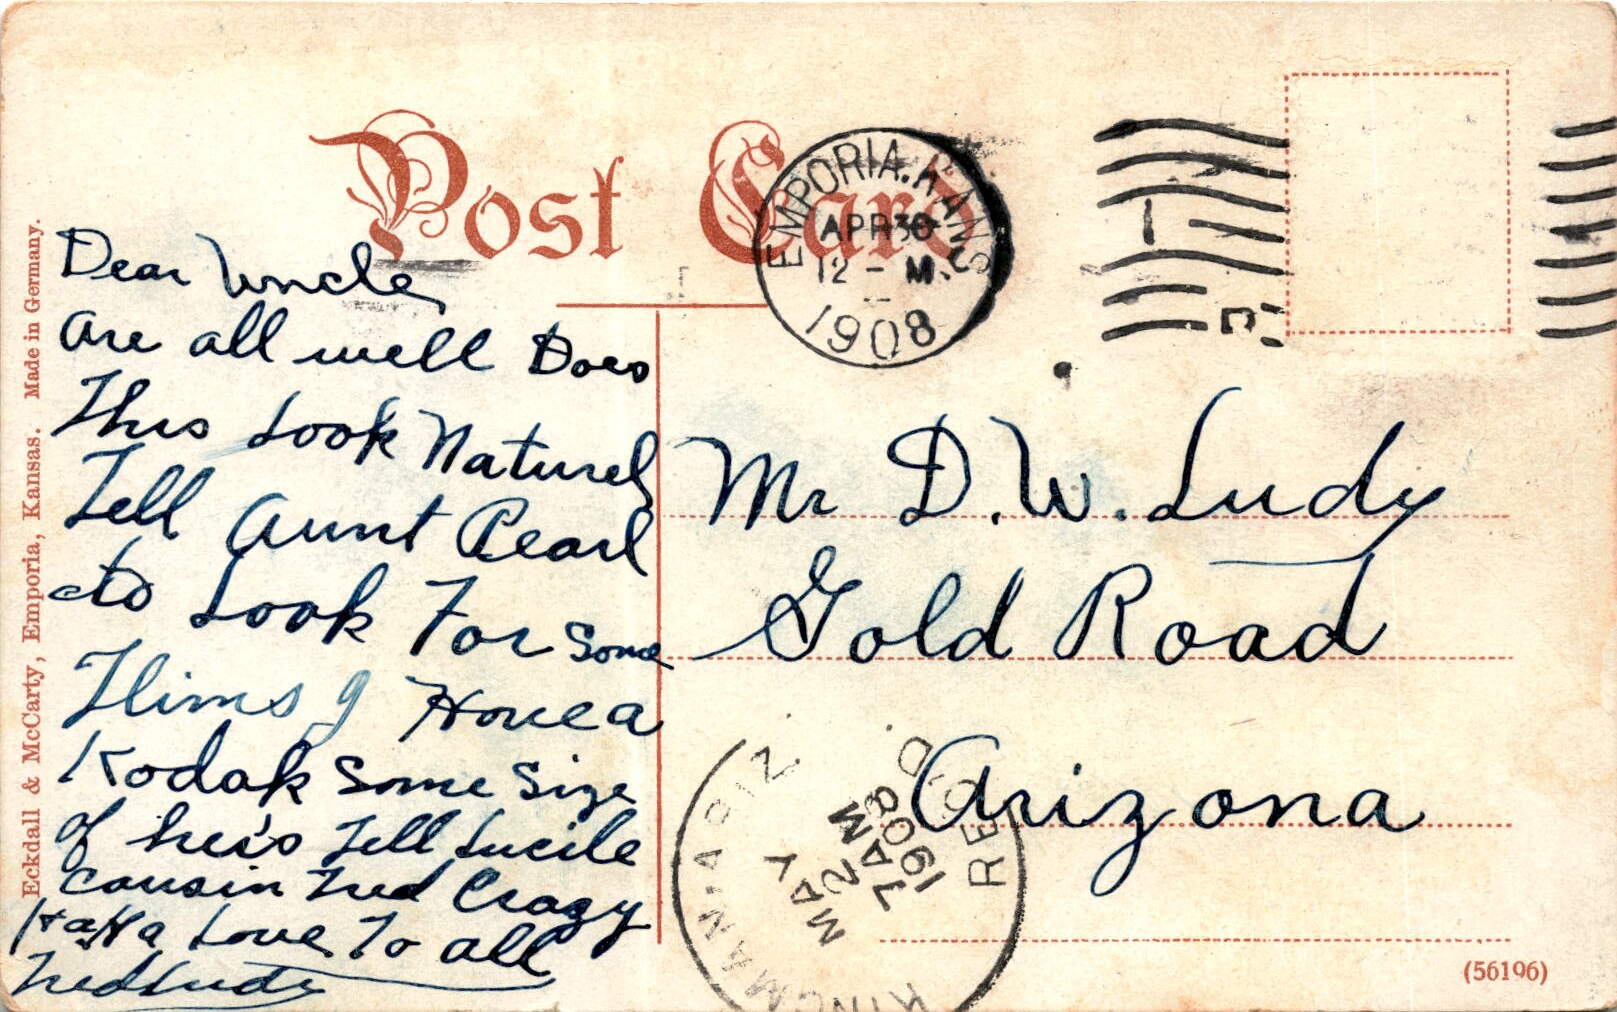 Post Card
EMPORIA, KANS.
APR 30
12 - M.
1908
Dear Uncle
are all well Does
This Look Naturel
Tell Aunt Pearl
to Look For Some
Flims I Have a
Kodak Some Size
of his Tell Lucile
cousin Fred Crazy
Ha Ha Love To all
Fred Ludy
Mr D. W. Ludy
Gold Road
Arizona
KINGMAN ARIZ.
MAY
2
7 AM
1908
REC'D
Eckdall & McCarty, Emporia, Kansas. Made in Germany.
(56196)